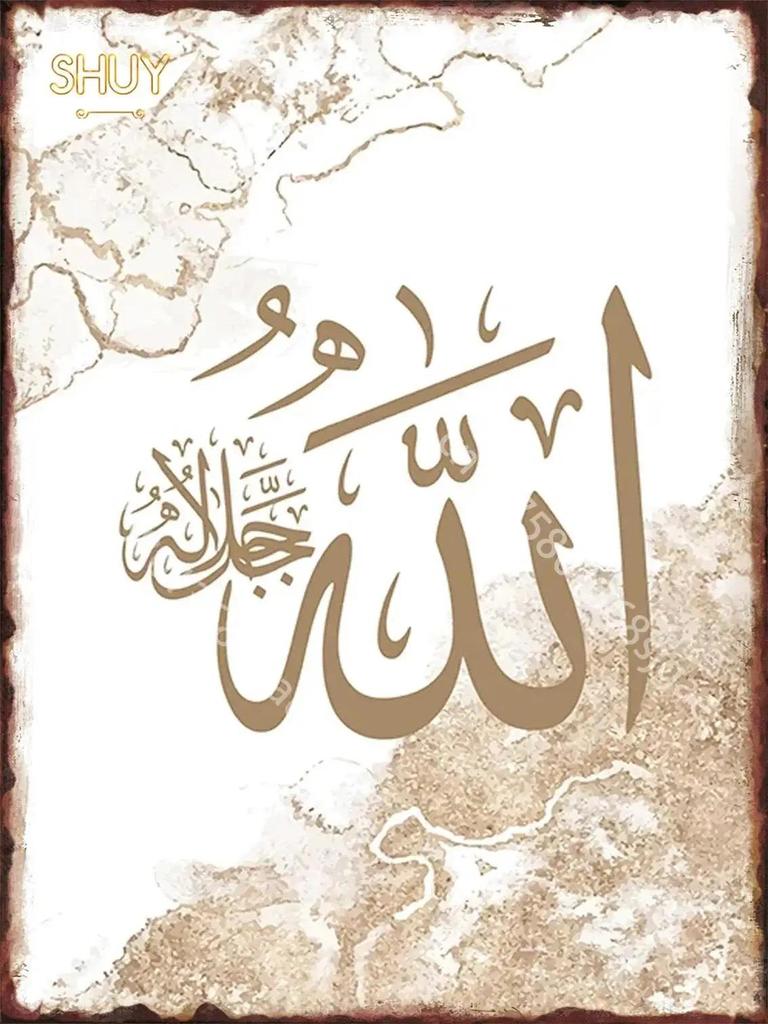 SHUY
الله
جل جلاله